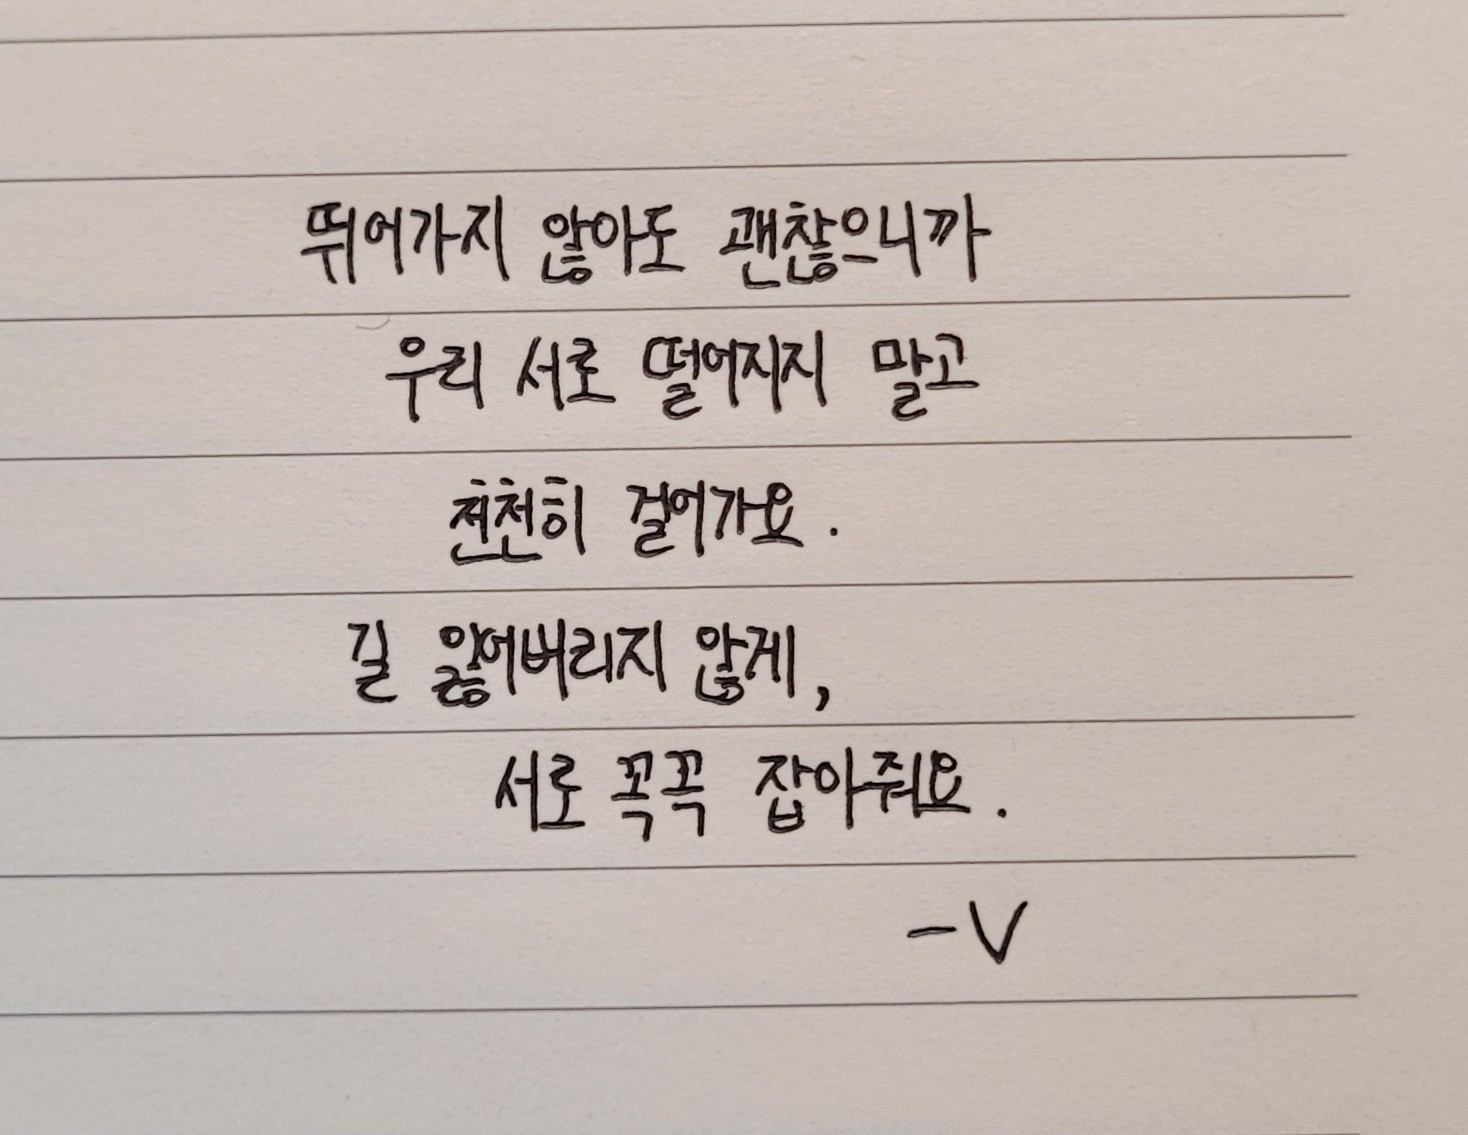 뛰어가지 않아도 괜찮으니까
우리 서로 떨어지지 말고
천천히 걸어가요.
길 잃어버리지 않게,
서로 꼭꼭 잡아줘요.
-V